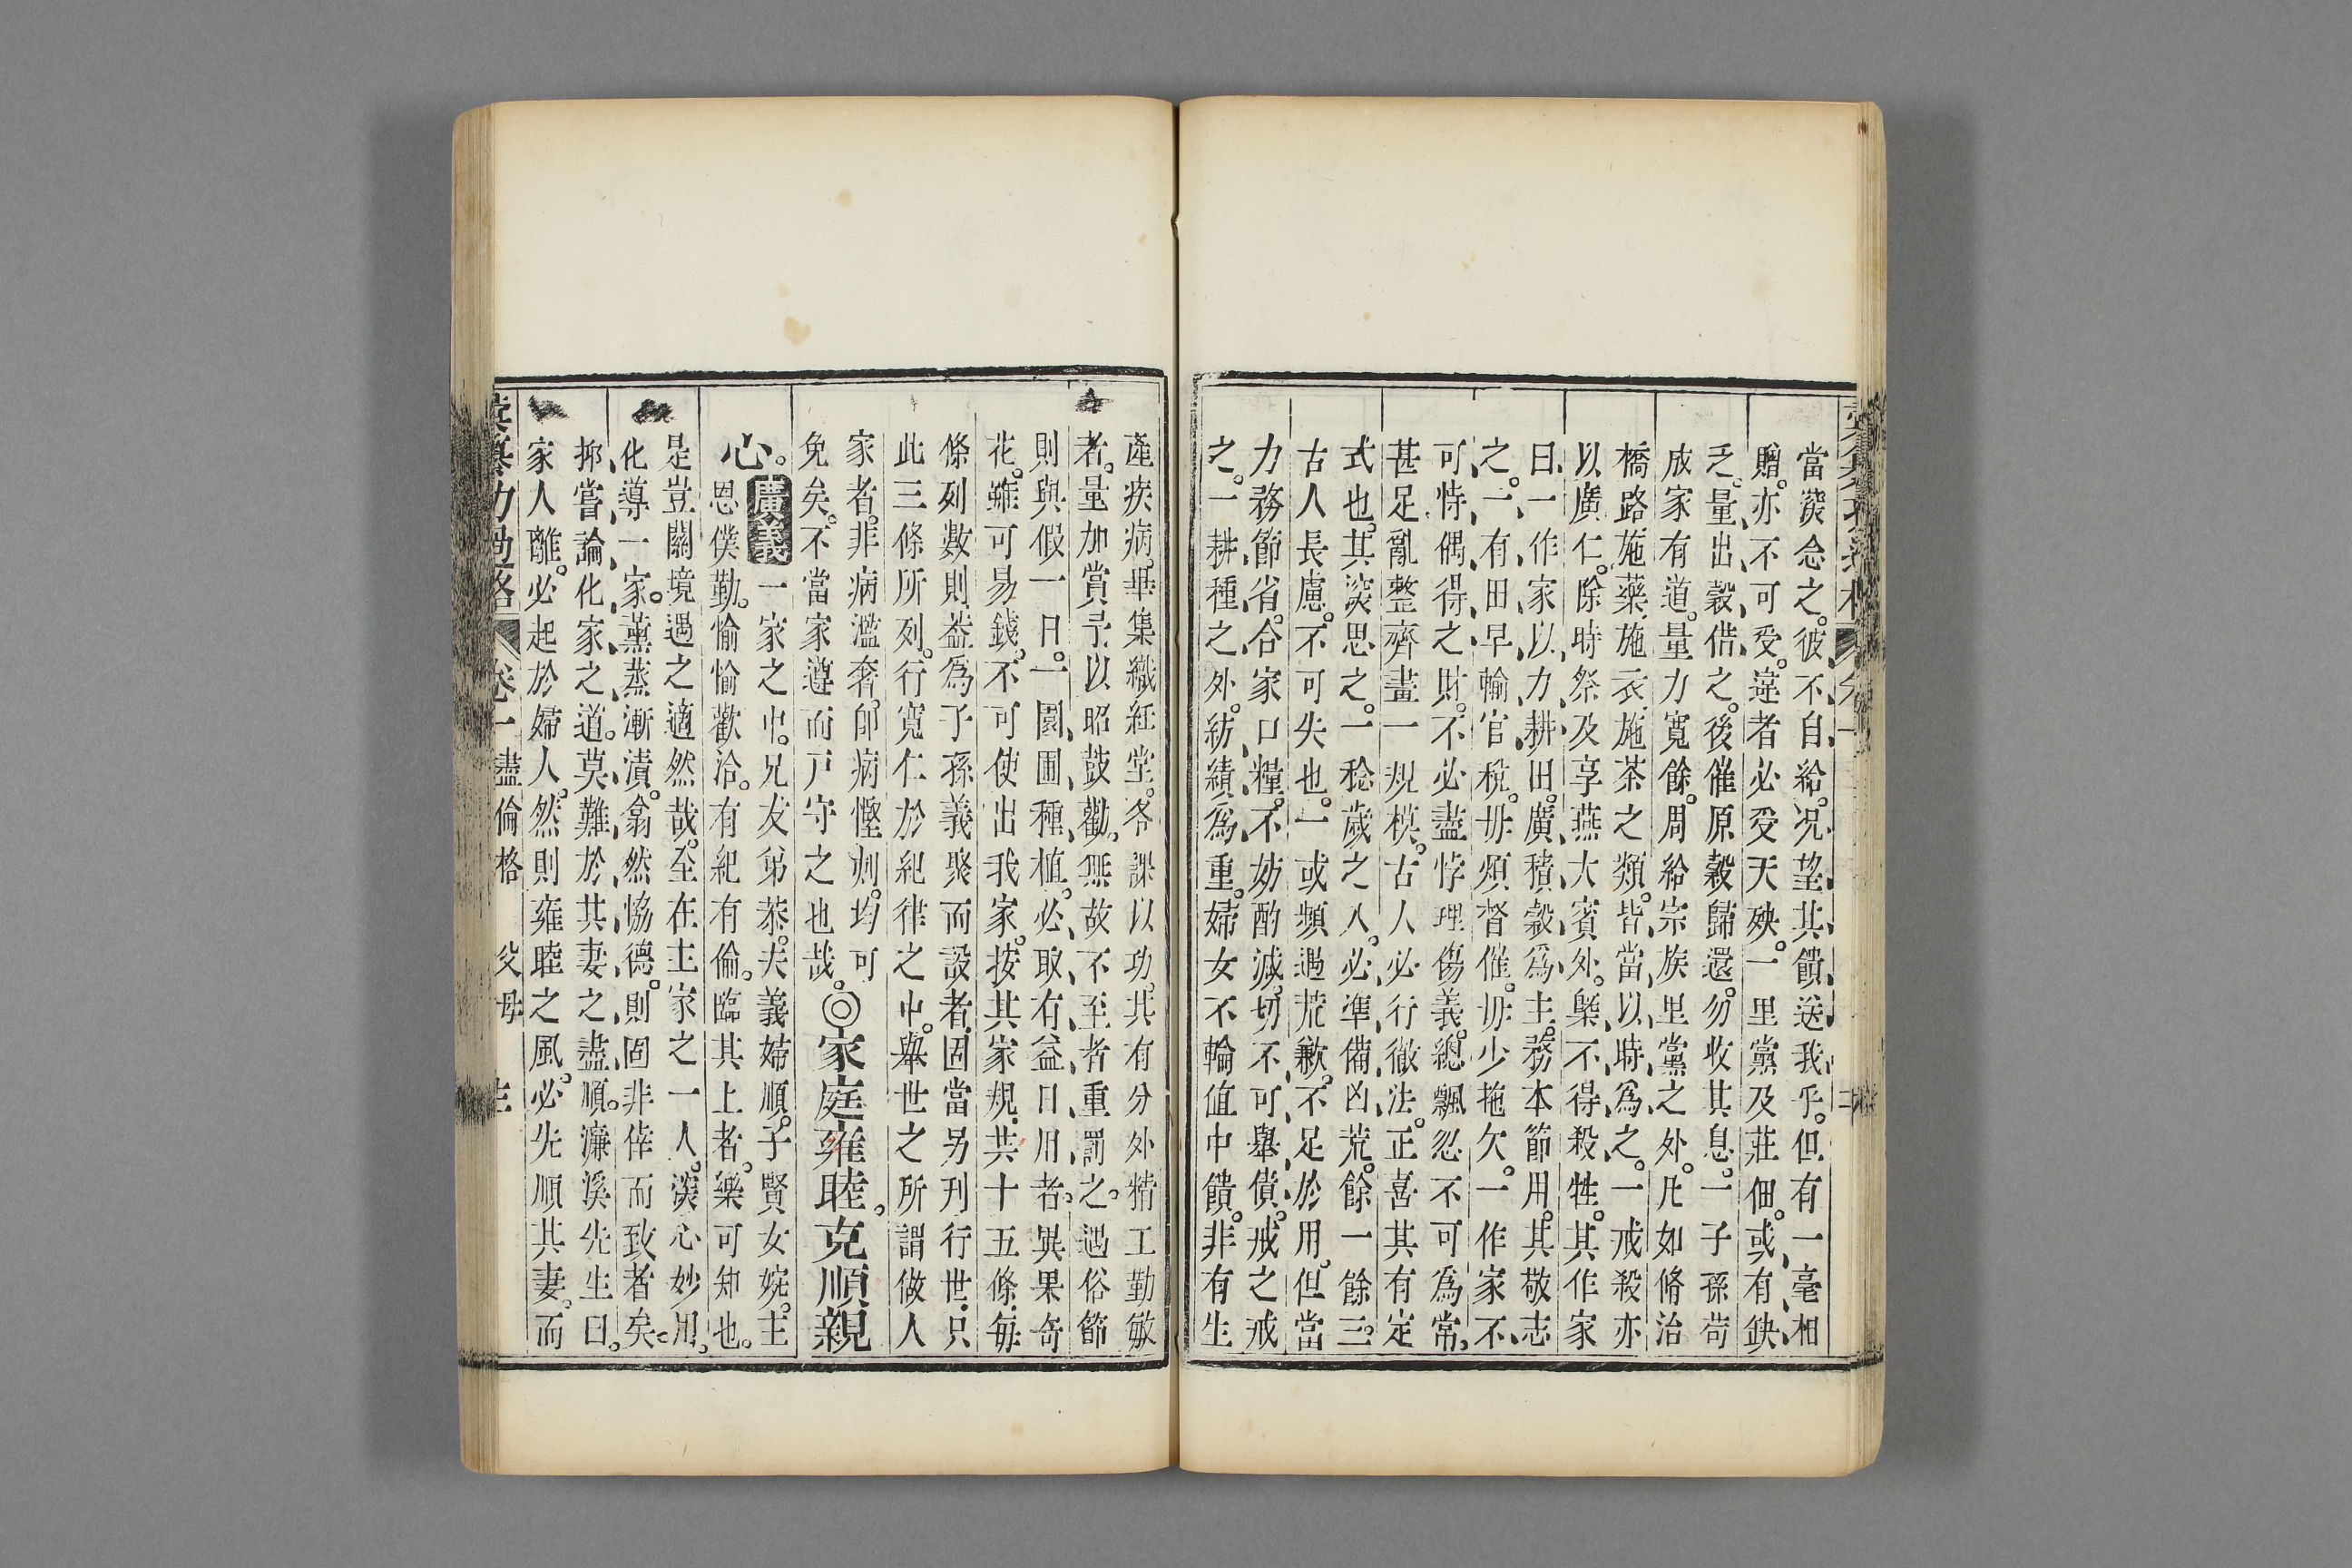 當深念之。彼不自給。况望其饋送我乎。但有一毫相
贈。亦不可受。違者必受天殃。一里黨及莊佃。或有缺
乏。量出穀借之。後催原穀歸還。勿收其息。一子孫苟
成家有道。量力寬餘。周給宗族里黨之外。凡如脩治
橋路施藥施衣施茶之類。皆當以時為之。一戒殺亦
以廣仁。除時祭及享燕大賓外。槩不得殺牲。其作家
曰一作家以力耕田。廣積穀為主。務本節用。其敬志
之。一有田早輸官稅。毋煩督催。毋少拖欠。一作家不
可恃偶得之財。不必盡悖理傷義。總飄忽不可為常。
甚足亂整齊畫一規模。古人必行徹法。正喜其有定
式也。其深思之。一稔歲之入。必準備凶荒。餘一餘三。
古人長慮。不可失也。一或頻遇荒歉。不足於用。但當
力務節省。合家口糧。不妨酌減。切不可舉債。戒之戒
之。一耕種之外。紡績為重。婦女不輪值中饋。非有生
產疾病。畢集織紝堂。各課以功。其有分外精工勤敏
者。量加賞予。以昭鼓勸。無故不至者。重罰之。遇俗節
則與假一日。一園圃種植。必取有益日用者。異果奇
花。雖可易錢。不可使出我家。按其家規共十五條。每
條列數則。葢為子孫義聚而設者。固當另刊行世。只
此三條所列。行寬仁於紀律之中。舉世之所謂做人
家者。非病濫奢。卽病慳刻。均可
免矣。不當家遵而戸守之也哉。
◎家庭雍睦。克順親
心。
廣義
一家之中。兄友弟恭。夫義婦順。子賢女婉。主
恩僕勤。愉愉歡洽。有紀有倫。臨其上者。樂可知也。
是豈關境遇之適然哉。至在主家之一人。深心妙用。
化導一家。薰蒸漸漬。翕然恊德。則固非倖而致者矣。
抑嘗論化家之道。莫難於其妻之盡順。濂溪先生曰。
家人離。必起於婦人。然則雍睦之風。必先順其妻。而
彙纂功過格
卷一 盡倫格 父母